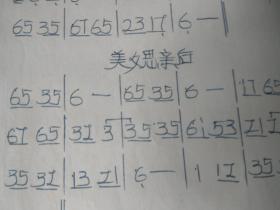 65 35 | 67 65 | 23 17 | 6 — ‖
美女思亲后
65 35 | 6 — | 65 35 | 6 — | 17 65
67 65 | 32 3 | 35 35 | 61 53 | 21
35 32 | 13 21 | 6 — | 1 12 | 35